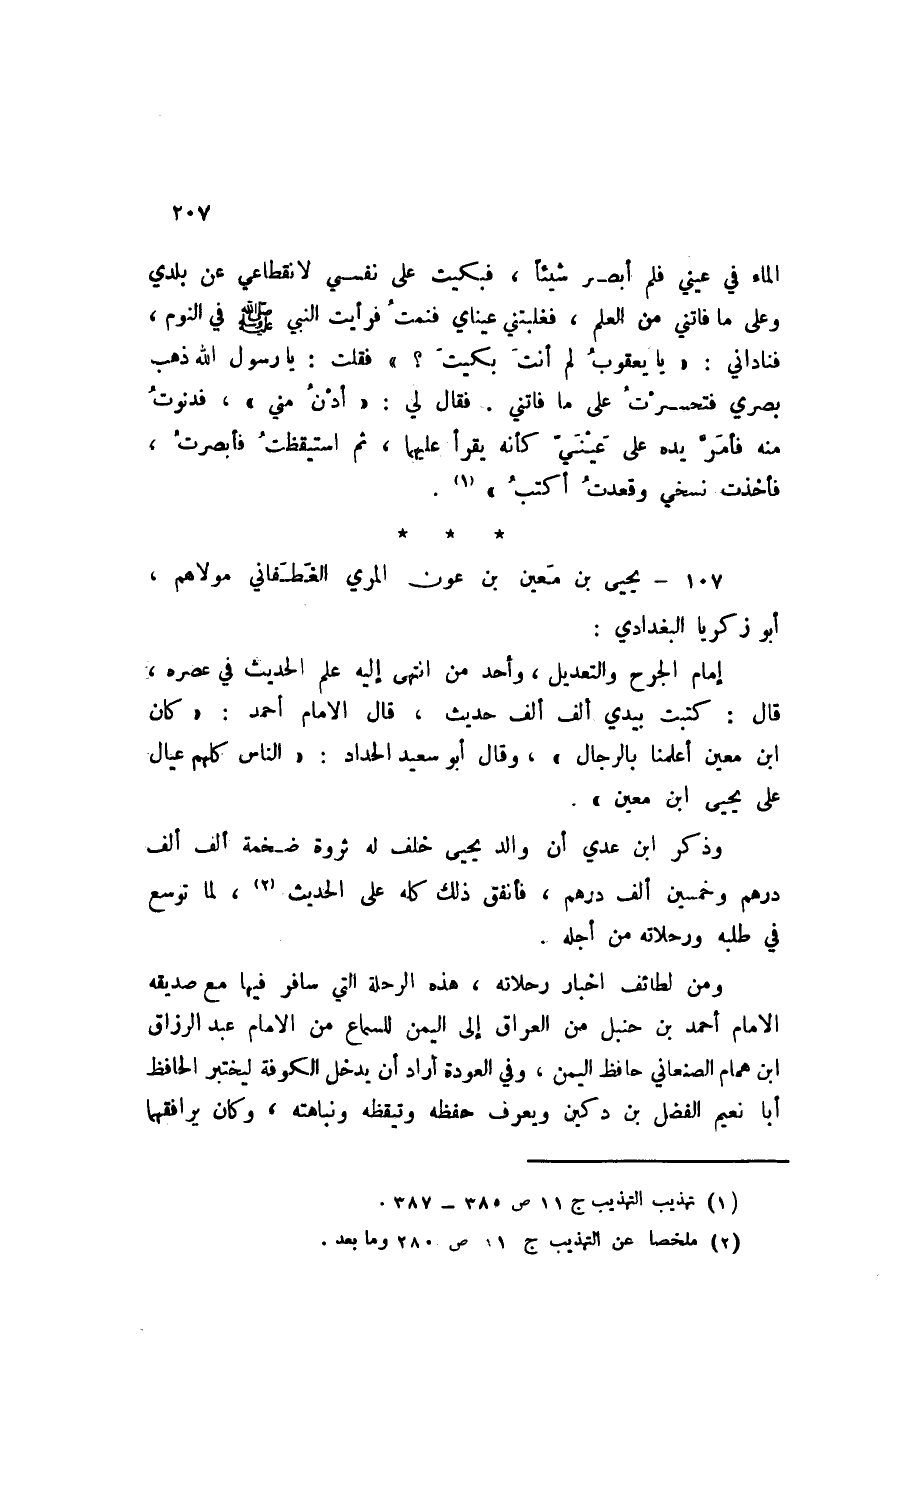 ٢٠٧
الماء في عيني فلم أبصر شيئاً ، فبكيت على نفسي لانقطاعي عن بلدي
وعلى ما فاتني من العلم ، فغلبتني عيناي فنمتُ فرأيت النبي ﷺ في النوم ،
فناداني : « يا يعقوبُ لم أنتَ بكيتَ ؟ » فقلت : يا رسول الله ذهب
بصري فتحسرْتُ على ما فاتني . فقال لي : « أدْنُ مني » ، فدنوتُ
منه فأمَرَّ يده على عَيْنَيَّ كأنه يقرأ عليها ، ثم استيقظتُ فأبصرتُ ،
فأخذت نسخي وقعدتُ أكتبُ » (١) .
* * *
١٠٧ – يحيى بن مَعين بن عون المري الغَطَفاني مولاهم ،
أبو زكريا البغدادي :
إمام الجرح والتعديل ، وأحد من انتهى إليه علم الحديث في عصره ،
قال : كتبت بيدي ألف ألف حديث ، قال الامام أحمد : « كان
ابن معين أعلمنا بالرجال » ، وقال أبو سعيد الحداد : « الناس كلهم عيال
على يحيى ابن معين » .
وذكر ابن عدي أن والد يحيى خلف له ثروة ضخمة ألف ألف
درهم وخمسين ألف درهم ، فأنفق ذلك كله على الحديث (٢) ، لما توسع
في طلبه ورحلاته من أجله .
ومن لطائف اخبار رحلاته ، هذه الرحلة التي سافر فيها مع صديقه
الامام أحمد بن حنبل من العراق إلى اليمن للسماع من الامام عبد الرزاق
ابن همام الصنعاني حافظ اليمن ، وفي العودة أراد أن يدخل الكوفة ليختبر الحافظ
أبا نعيم الفضل بن دكين ويعرف حفظه وتيقظه ونباهته ، وكان يرافقهما
(١) تهذيب التهذيب ج ١١ ص ٣٨٥ – ٣٨٧ .
(٢) ملخصا عن التهذيب ج ١١ ص ٢٨٠ وما بعد .